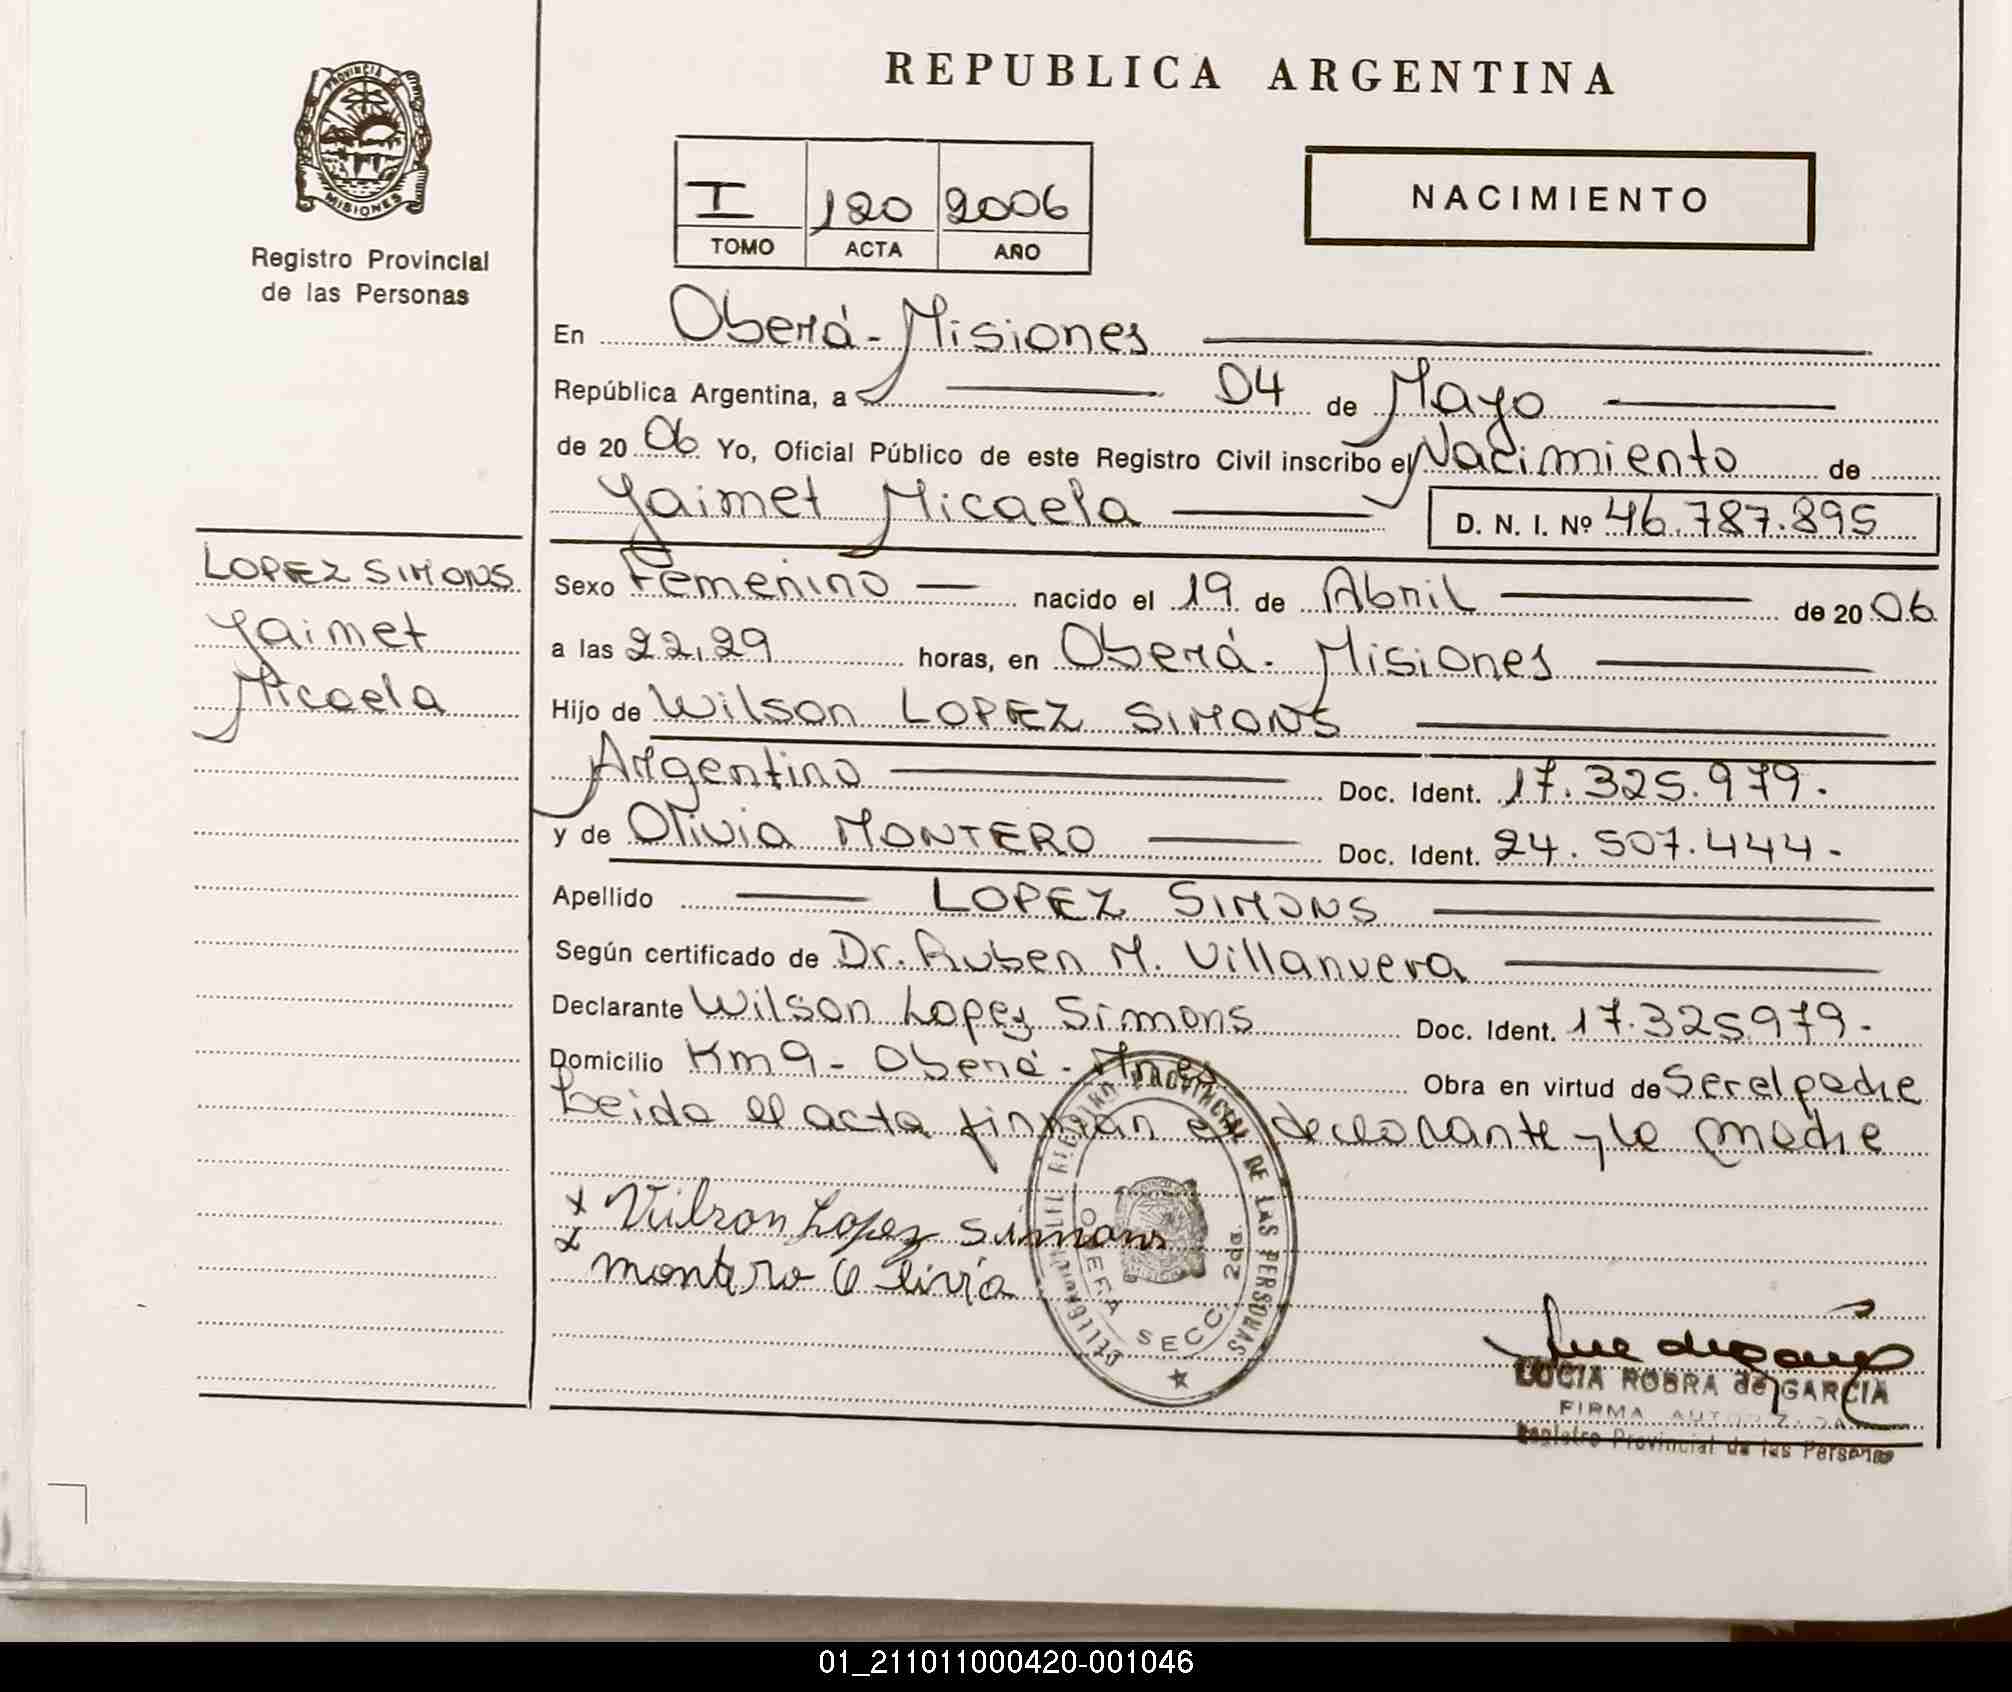 REPUBLICA ARGENTINA
PROVINCIA DE
MISIONES
Registro Provincial
de las Personas
I 120 2006
TOMO ACTA AÑO
NACIMIENTO
En Oberá - Misiones
República Argentina, a 04 de Mayo
de 2006 Yo, Oficial Público de este Registro Civil inscribo el Nacimiento de
Yaimet Micaela D. N. I. Nº 46.787.895
LOPEZ SIMONS
Yaimet
Micaela
Sexo Femenino nacido el 19 de Abril de 2006
a las 22,29 horas, en Oberá - Misiones
Hijo de Wilson LOPEZ SIMONS
Argentino Doc. Ident. 17.325.979.
y de Olivia MONTERO Doc. Ident. 24.507.444-
Apellido LOPEZ SIMONS
Según certificado de Dr. Ruben M. Villanueva
Declarante Wilson Lopez Simons Doc. Ident. 17.325979-
Domicilio Km 9 - Oberá - Mnes Obra en virtud de Ser el padre
Leida el acta firman el declarante y la madre
x Wilson Lopez Simons
x Montero Olivia
REGISTRO PROVINCIAL DE LAS PERSONAS
OBERA SECC. 2da.
LUCIA ROBRA de GARCIA
FIRMA AUTORIZADA
Registro Provincial de las Personas
01_211011000420-001046